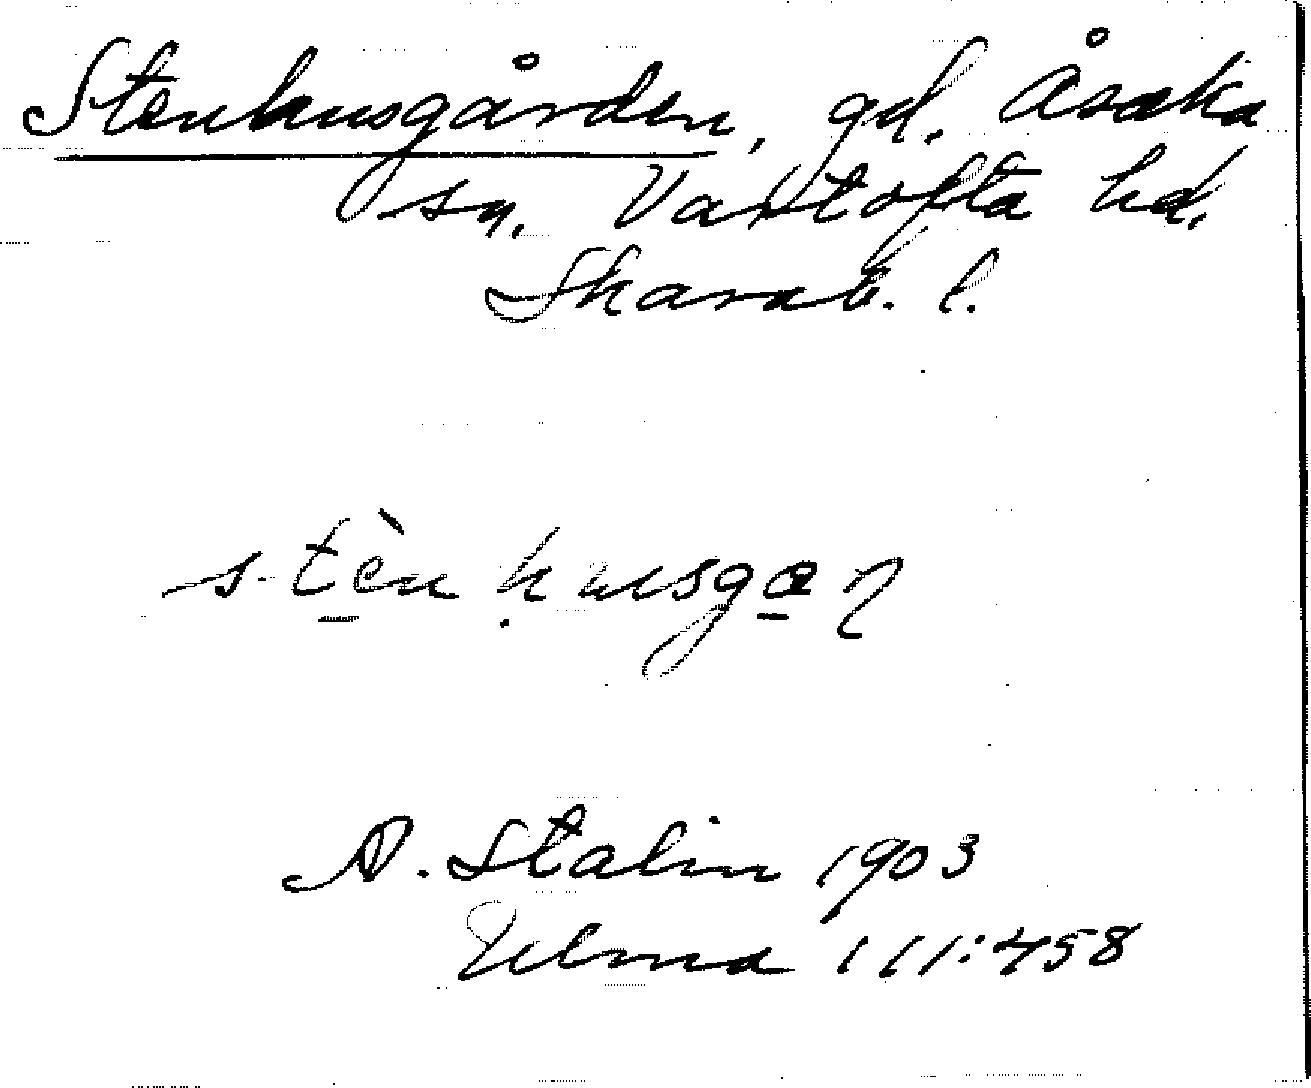 Stenhusgården, gd. Åsaka
sn. Vartofta hd.
Skarab. l.
stèn husgaɳ
A. Stalin 1903
Ulma 111:458